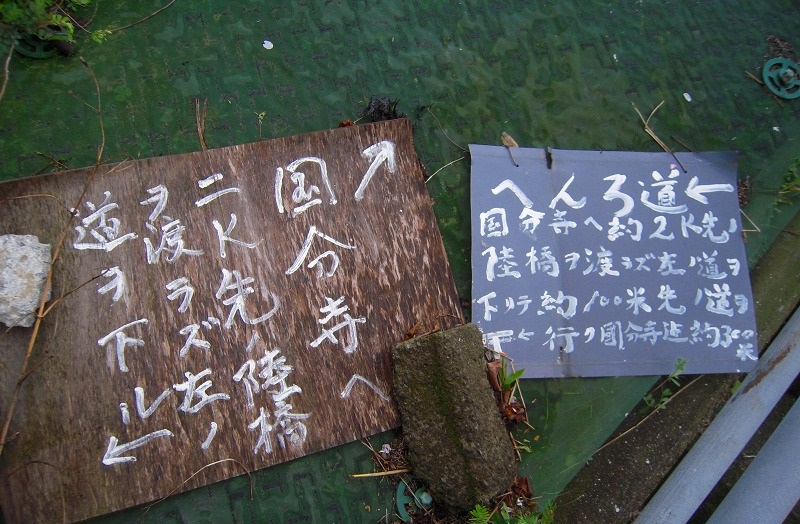 ↗
国分寺へ
二K先ノ陸橋
ヲ渡ラズ左ノ
道ヲ下ル←
へんろ道←
国分寺へ約2K先ノ
陸橋ヲ渡ラズ左ノ道ヲ
下リテ約100米先ノ道ヲ
下へ行ク国分寺迄約300米